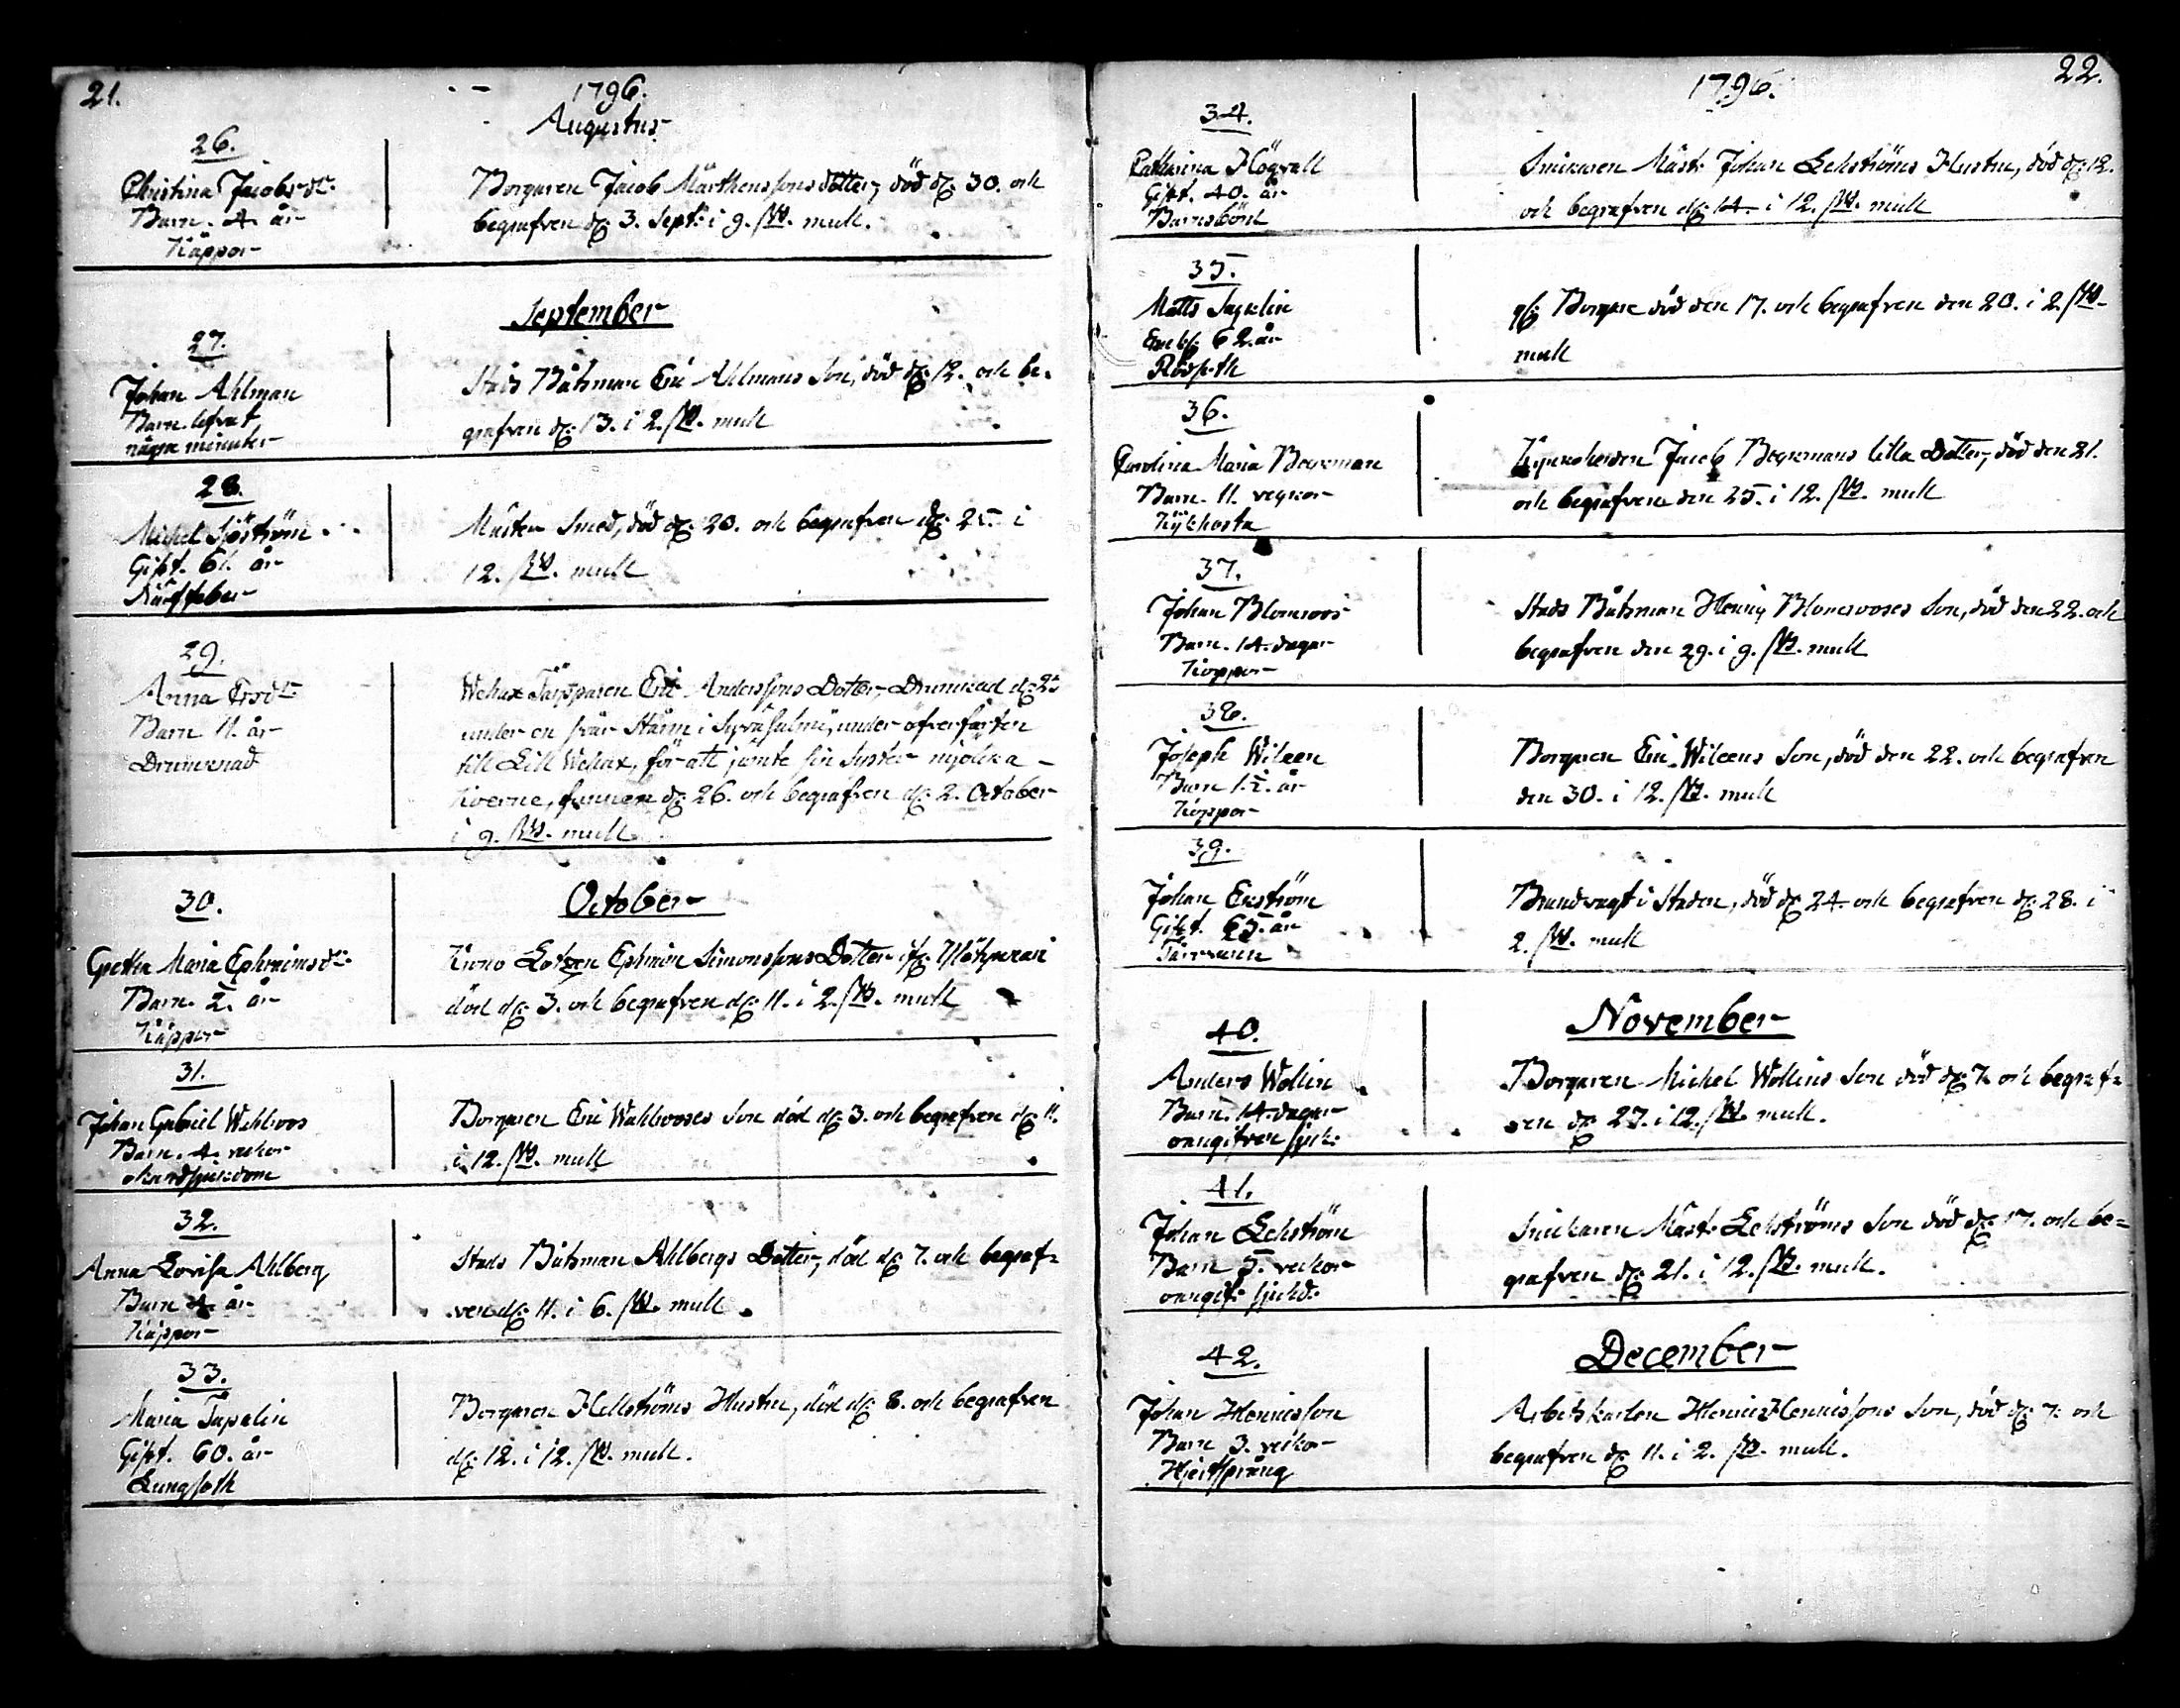 21.
1796.
Augustus
26.
Christina Jacobsdr:
Barn. 4. år
Kåppor
Borgaren Jacob Mårthenssons dotter, död d: 30. och
begrafven d: 3. Sept: i 9. sk. mull.
September
27.
Johan Ahlman
Barn. lefvat
några minuter
Stads Båtsman Eric Ahlmans Son, död d: 12. och be-
grafven d: 13. i 2. sk. mull
28.
Michel Sjöström
Gift. 61. år
Mästen Smed, död d: 20. och begrafven d: 25. i
12. sk. mull
29.
Anna Ersdr
Barn 11. år
Drunknad
Wehax Eric Anderssons Dotter, Drunknad d: 25
under en svår Storm i under öfverfarten
till Lill Wehax, för att jämte sin Syster mjölka
Korne, funnen d: 26. och begrafven d: 2. October
i 9. sk. mull
October
30.
Gretha Maria Ephraimsdr:
Barn. 2. år
Kåppor
Krono Lotzen Ephraim Simonssons Dotter
död d: 3. och begrafven d: 11. i 2. sk. mull
31.
Johan Gabriel Wahlroos
Barn. 4. veckor
okändsjukdom
Borgaren Eric Wahlrooses Son död d: 3. och begrafven d: 11.
i 12. sk. mull
32.
Anna Lovisa Ahlberg
Barn 4. år
Kåppor
Stads Båtsman Ahlbergs Dotter, död d: 7. och begraf-
ven d: 11. i 6. sk. mull.
33.
Maria Tapelin
Gift. 60. år
Lungsoth
Borgaren Hellströms Hustru, död d: 8. och begrafven
d: 12. i 12. sk. mull.
22.
1796.
34.
Catharina Högvall
Gift. 40. år
Barnsbörd
Snickaren Mäst: Johan Lekströms Hustru, död d: 12.
och begrafven d: 14. i 12. sk. mull
35.
Matts
Enkl: 62. år
Rödsoth
Borgare död den 17. och begrafven den 20. i 2. sk.
mull
36.
Carolina Maria Beckman
Barn. 11. veckor
Kikhosta
Jacob Beckmans lilla Dotter, död den 21.
och begrafven den 25. i 12. sk. mull
37.
Johan Blomroos
Barn. 14. dagar
Koppor
Stads Båtsman Henric Blomrooses Son, död den 22. och
begrafven den 29. i 9. sk. mull
38.
Joseph Wileen
Barn 1½. år
Koppor
Borgaren Eric Wileens Son, död den 22. och begrafven
den 30. i 12. sk. mull
39.
Johan Ekström
Gift. 65. år
Brandvagt i Staden, död d: 24. och begrafven d: 28. i
2. sk. mull
November
40.
Anders Wollin
Barn. 14. dagar
onngifven sjuk:
Borgaren Michel Wollins Son död d: 7. och begraf-
ven d: 27. i 12. sk. mull.
41.
Johan Lekström
Barn 5. veckor
onngif: sjukd:
Snickaren Mäst: Lekströms Son död d: 17. och be-
grafven d: 21. i 12. sk. mull.
December
42.
Johan Hennicsson
Barn 3. veckor
Hjertsprång
Arbetskarlen Hennic Hennicssons Son, död d: 7. och
begrafven d: 11. i 2. sk. mull.